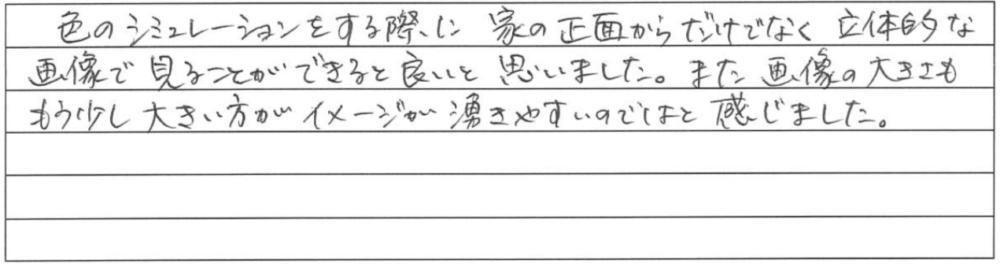 色のシミュレーションをする際に 家の正面からだけでなく 立体的な
画像で見ることができると良いと思いました。また画像の大きさも
もう少し大きい方がイメージが湧きやすいのではと感じました。